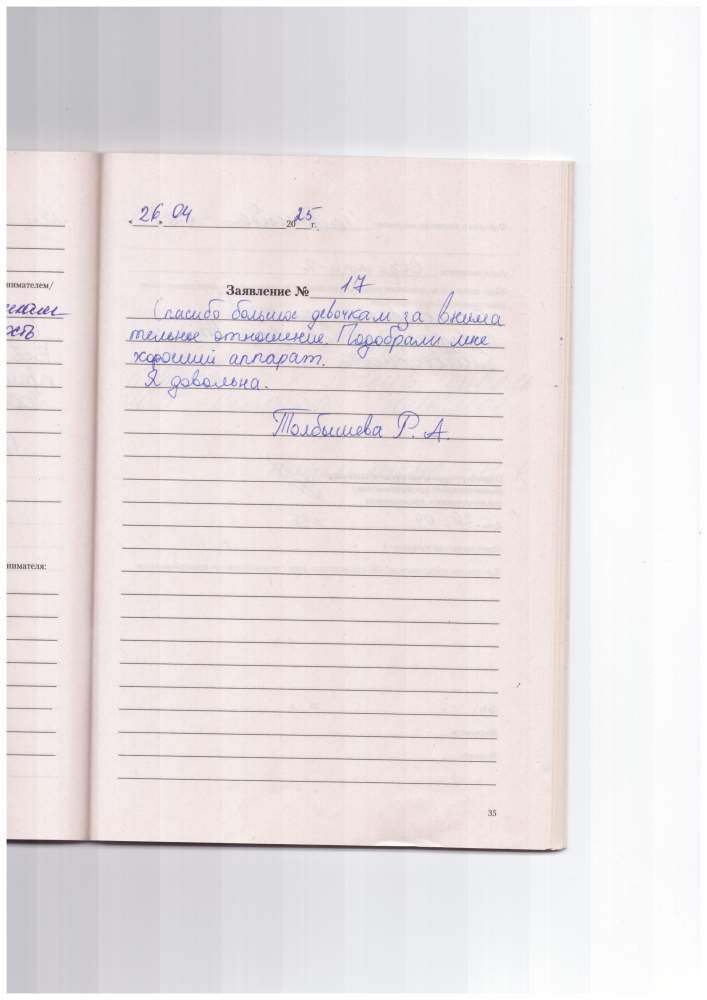 26. 04 2025 г.
нимателем/
Заявление № 17
Спасибо большое девочкам за внима
тельное отношение. Подобрали мне
хороший аппарат.
Я довольна.
Толбышева Р. А.
нимателя:
35